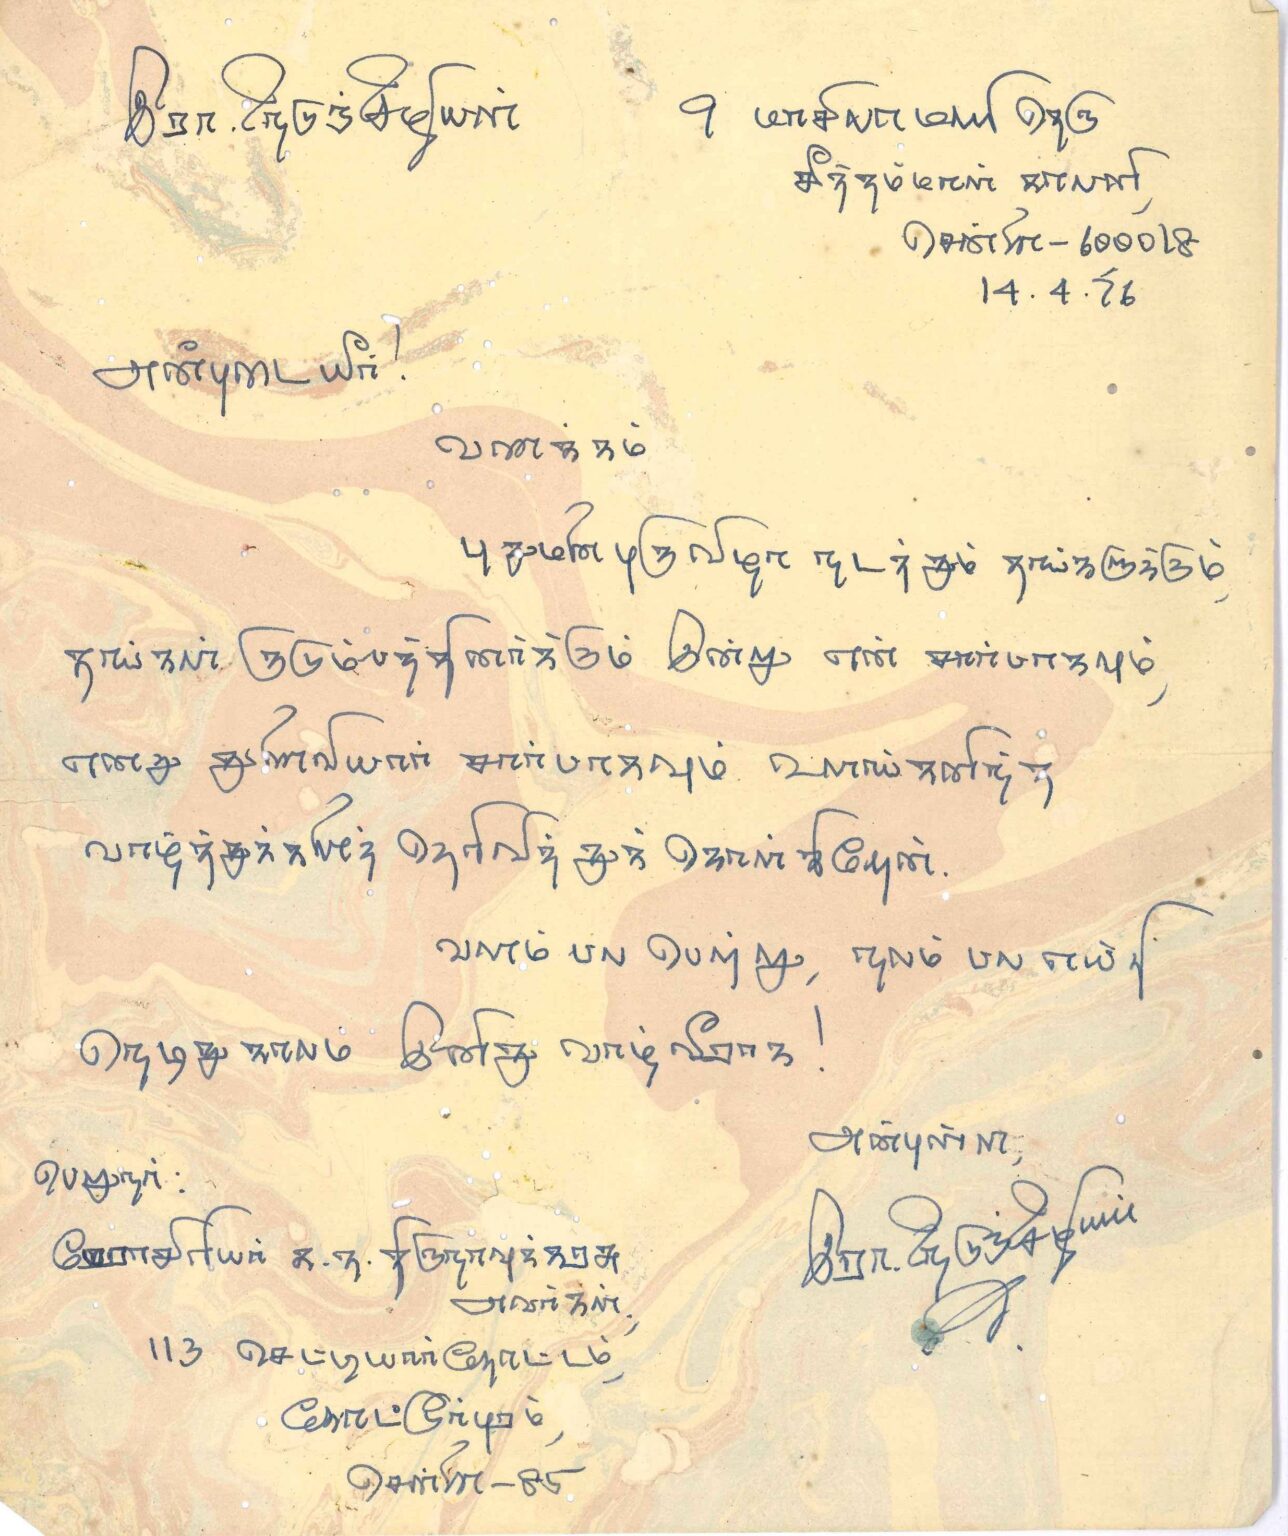 இரா. நெடுஞ்செழியன்
9 மாசிலாமணி தெரு
சீத்தம்மாள் காலனி,
சென்னை - 600018
14.4.76
அன்புடையீர்!
வணக்கம்
புதுமனைபுகுவிழா நடத்தும் தாங்களுக்கும்,
தாங்கள் குடும்பத்தினர்க்கும் இன்று என் சார்பாகவும்,
எனது துணைவியார் சார்பாகவும் உளங்கனிந்த
வாழ்த்துக்களைத் தெரிவித்துக் கொள்கிறேன்.
வளம் பல பெற்று, நலம் பல எய்தி
நெடிது காலம் இனிது வாழ்வீராக!
அன்புள்ள,
இரா. நெடுஞ்செழியன்
பெறுநர்:
பேராசிரியர் க. த. திருநாவுக்கரசு
அவர்கள்,
113 செட்டியார்தோட்டம்,
கோட்டூர்புரம்,
சென்னை - 85